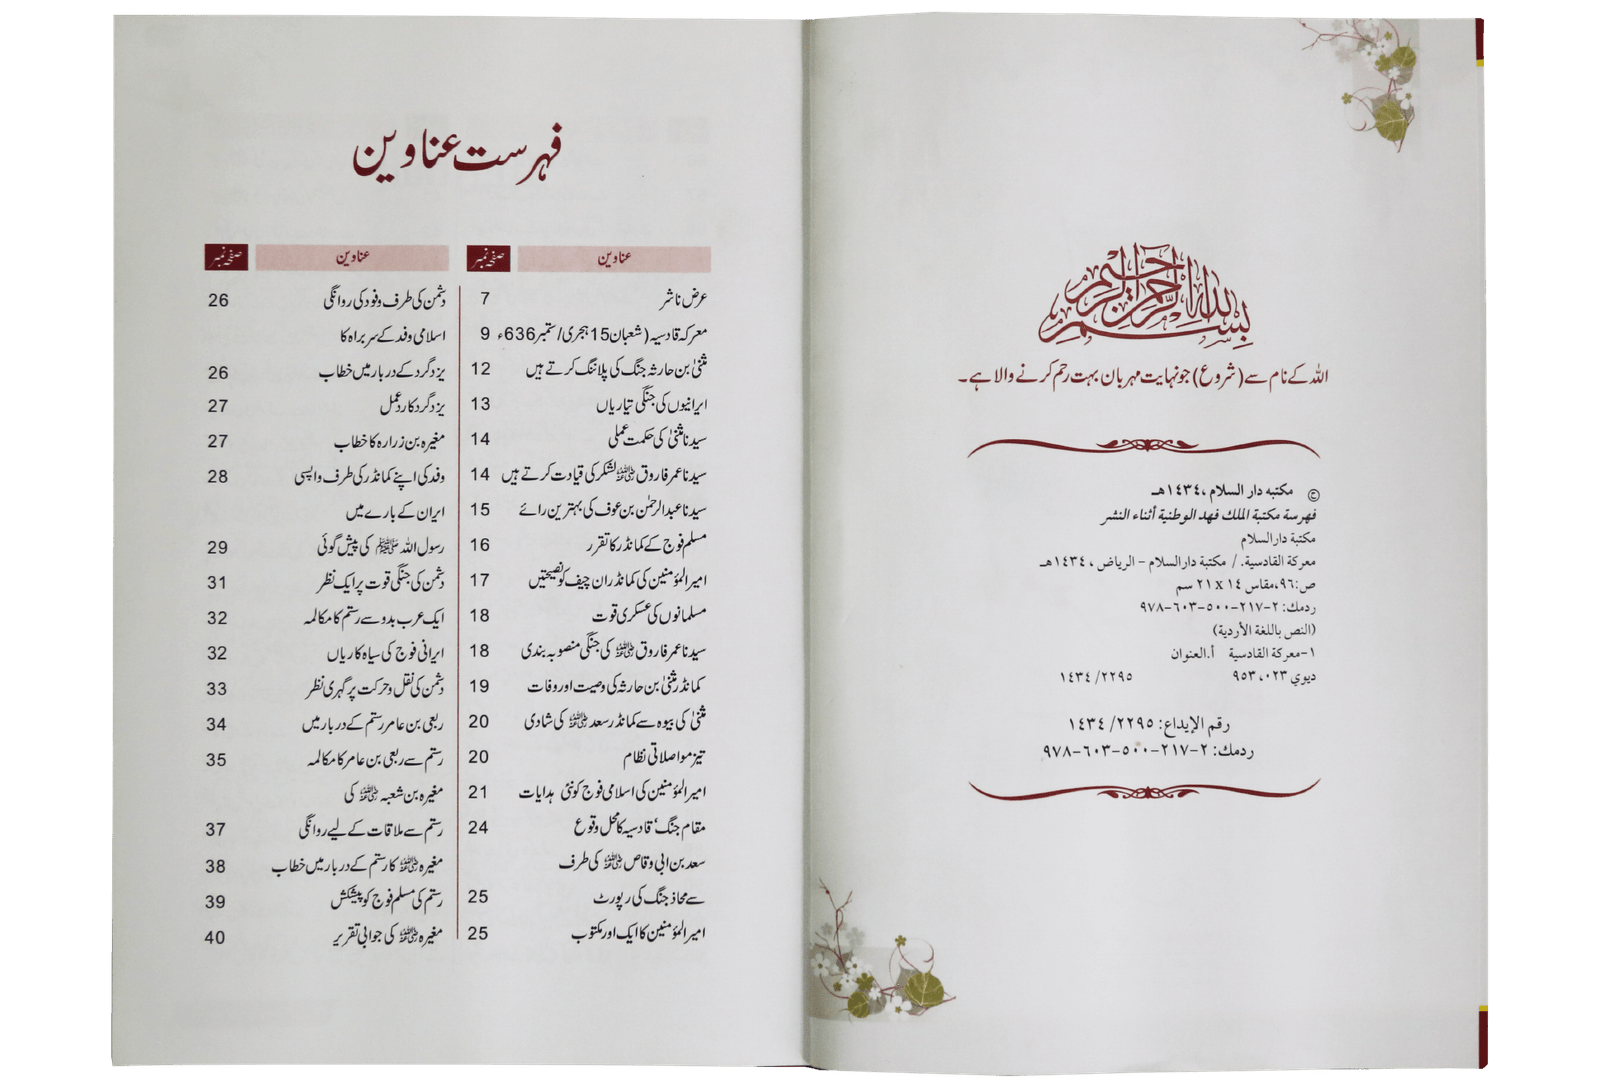 بسم الله الرحمن الرحيم
اللہ کے نام سے (شروع) جو نہایت مہربان بہت رحم کرنے والا ہے۔
© مكتبه دار السلام ،١٤٣٤هـ
فهرسة مكتبة الملك فهد الوطنية أثناء النشر
مكتبة دارالسلام
معركة القادسية. / مكتبة دارالسلام - الرياض ، ١٤٣٤هـ
ص:٩٦،مقاس ١٤ x ٢١ سم
ردمك: ٢-٢١٧-٥٠٠-٦٠٣-٩٧٨
(النص باللغة الأردية)
١-معركة القادسية أ.العنوان
ديوي ٩٥٣،٠٢٣ ١٤٣٤/٢٢٩٥
رقم الإيداع: ١٤٣٤/٢٢٩٥
ردمك: ٢-٢١٧-٥٠٠-٦٠٣-٩٧٨
فہرست عناوین
عناوین صفحہ نمبر
عرض ناشر 7
معرکہ قادسیہ (شعبان 15 ہجری/ستمبر 636ء 9
مثنیٰ بن حارثہ جنگ کی پلاننگ کرتے ہیں 12
ایرانیوں کی جنگی تیاریاں 13
سیدنا مثنیٰ کی حکمت عملی 14
سیدنا عمر فاروق رضی اللہ عنہ لشکر کی قیادت کرتے ہیں 14
سیدنا عبدالرحمٰن بن عوف کی بہترین رائے 15
مسلم فوج کے کمانڈر کا تقرر 16
امیر المؤمنین کی کمانڈران چیف کو نصیحتیں 17
مسلمانوں کی عسکری قوت 18
سیدنا عمر فاروق رضی اللہ عنہ کی جنگی منصوبہ بندی 18
کمانڈر مثنیٰ بن حارثہ کی وصیت اور وفات 19
مثنیٰ کی بیوہ سے کمانڈر سعد رضی اللہ عنہ کی شادی 20
تیز مواصلاتی نظام 20
امیر المؤمنین کی اسلامی فوج کو نئی ہدایات 21
مقام جنگ ‘ قادسیہ کا محل وقوع 24
سعد بن ابی وقاص رضی اللہ عنہ کی طرف
سے محاذ جنگ کی رپورٹ 25
امیر المؤمنین کا ایک اور مکتوب 25
عناوین صفحہ نمبر
دشمن کی طرف وفود کی روانگی 26
اسلامی وفد کے سربراہ کا
یزدگرد کے دربار میں خطاب 26
یزدگرد کا ردعمل 27
مغیرہ بن زرارہ کا خطاب 27
وفد کی اپنے کمانڈر کی طرف واپسی 28
ایران کے بارے میں
رسول اللہ ﷺ کی پیش گوئی 29
دشمن کی جنگی قوت پر ایک نظر 31
ایک عرب بدو سے رستم کا مکالمہ 32
ایرانی فوج کی سیاہ کاریاں 32
دشمن کی نقل و حرکت پر گہری نظر 33
ربعی بن عامر رستم کے دربار میں 34
رستم سے ربعی بن عامر کا مکالمہ 35
مغیرہ بن شعبہ رضی اللہ عنہ کی
رستم سے ملاقات کے لیے روانگی 37
مغیرہ رضی اللہ عنہ کا رستم کے دربار میں خطاب 38
رستم کی مسلم فوج کو پیشکش 39
مغیرہ رضی اللہ عنہ کی جوابی تقریر 40